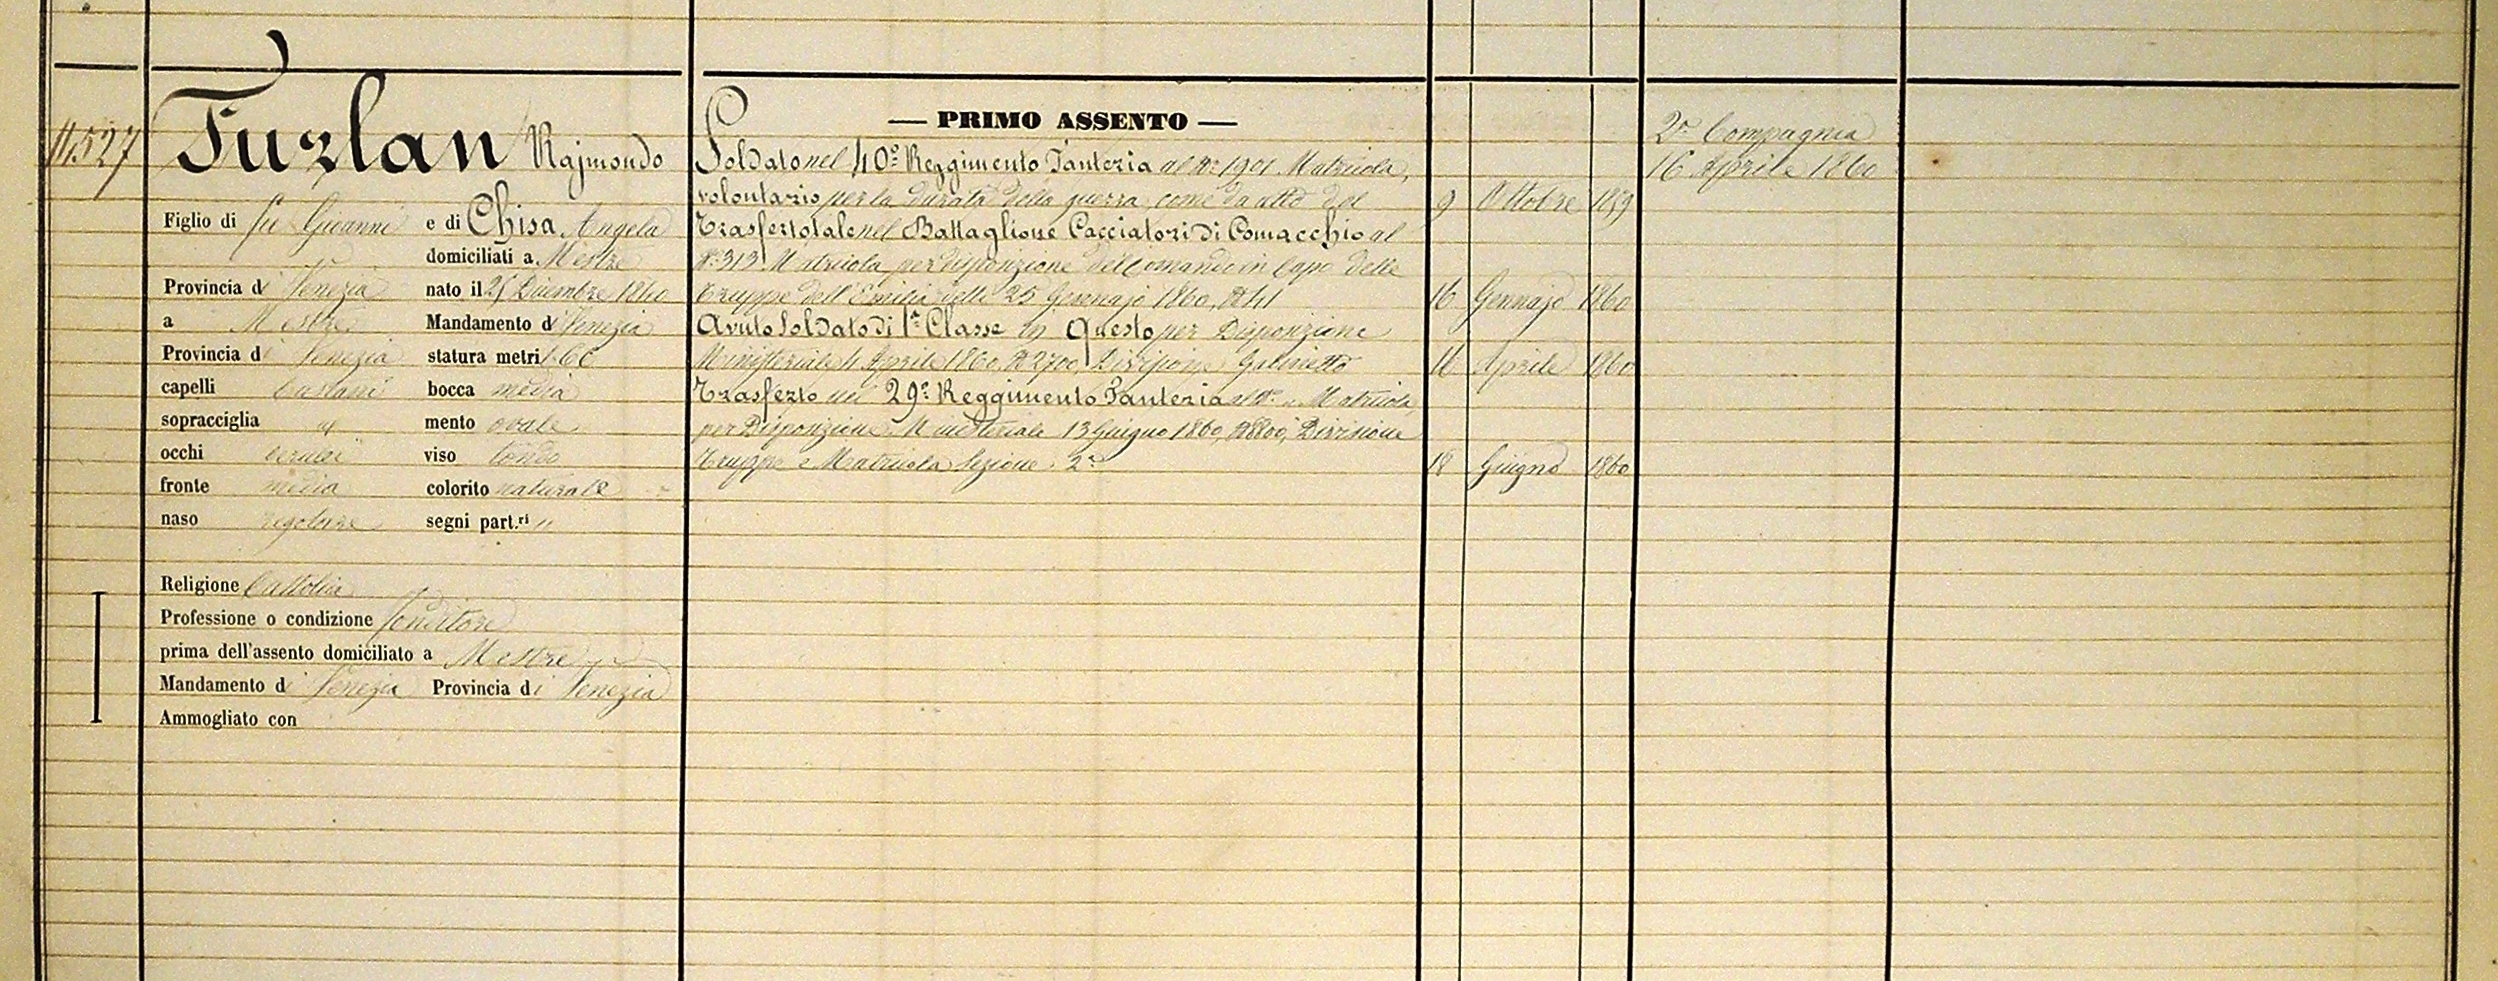 4527
Furlan Rajmondo
Figlio di fu Gioanni e di Chisa Angela
domiciliati a Mestre
Provincia di Venezia nato il 25 Dicembre 1840
a Mestre Mandamento di Venezia
Provincia di Venezia statura metri 1.66
capelli Castani bocca media
sopracciglia id mento ovale
occhi cerulei viso tondo
fronte media colorito naturale
naso regolare segni part.ri "
Religione Cattolica
Professione o condizione Fonditore
prima dell'assento domiciliato a Mestre
Mandamento di Venezia Provincia di Venezia
Ammogliato con
— PRIMO ASSENTO —
Soldato nel 40º Reggimento Fanteria al Nº 1901 Matricola,
volontario per la durata della guerra come da atto del 9 Ottobre 1859
Trasferto tale nel Battaglione Cacciatori di Comacchio al
Nº 313 Matricola per disposizione del Comando in Capo delle
Truppe dell'Emilia delli 25 Gennajo 1860, Nº 41 16 Gennajo 1860
Avuto Soldato di 1ª Classe in questo per Disposizione
Ministeriale 4 Aprile 1860, Nº 2700, Divisione Gabinetto 16 Aprile 1860
Trasferto nel 29º Reggimento Fanteria al Nº " Matricola,
per Disposizione Ministeriale 13 Giugno 1860, Nº 8800, Divisione
Truppe e Matricola Sezione 2ª 18 Giugno 1860
2ª Compagnia
16 Aprile 1860